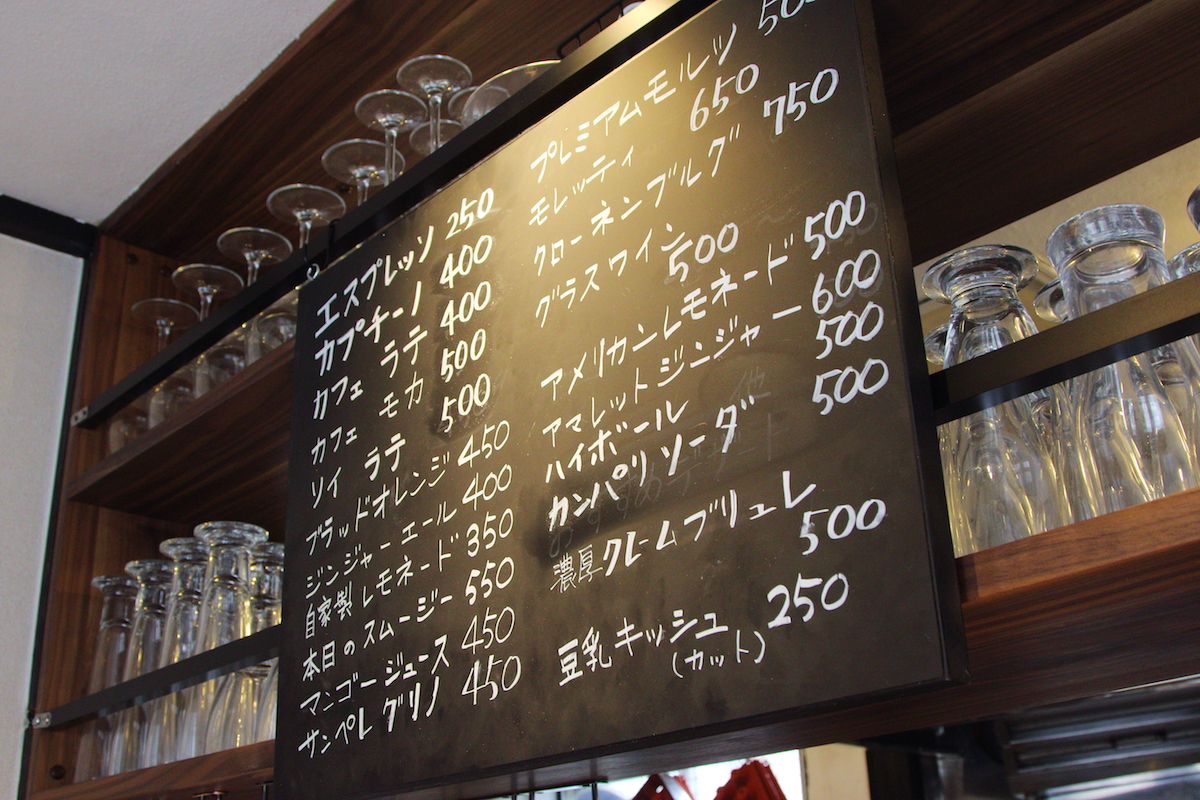 エスプレッソ 250
カプチーノ 400
カフェ ラテ 400
カフェ モカ 500
ソイ ラテ 500
ブラッドオレンジ 450
ジンジャーエール 400
自家製レモネード 350
本日のスムージー 550
マンゴージュース 450
サンペレグリノ 450
プレミアムモルツ
モレッティ 650
クローネンブルグ 750
グラスワイン 500
アメリカンレモネード 500
アマレットジンジャー 600
ハイボール 500
カンパリソーダ 500
濃厚クレームブリュレ
500
豆乳キッシュ 250
(カット)